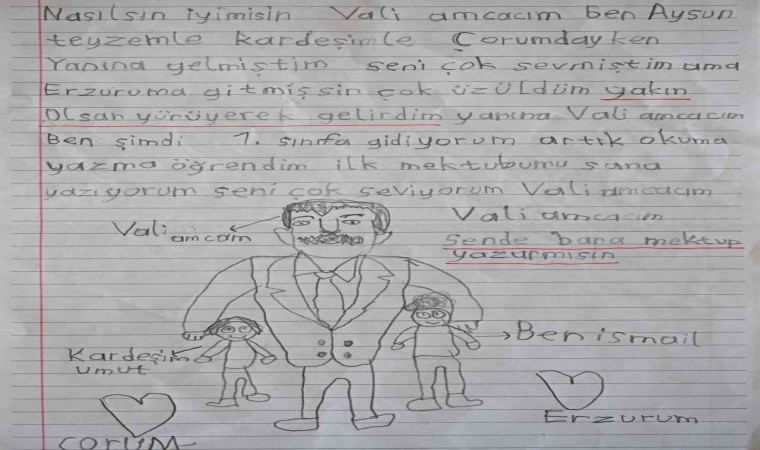 Nasılsın iyimisin Vali amcacım ben Aysun
teyzemle kardeşimle Çorumdayken
Yanına gelmiştim seni çok sevmiştim ama
Erzuruma gitmişsin çok üzüldüm yakın
Olsan yürüyerek gelirdim yanına Vali amcacım
Ben şimdi 1. sınıfa gidiyorum artık okuma
yazma öğrendim ilk mektubumu sana
yazıyorum seni çok seviyorum Vali amcacım
Vali amcam
Vali amcacım
sende bana mektup
yazarmısın
Kardeşim
umut
Ben ismail
Erzurum
ÇORUM